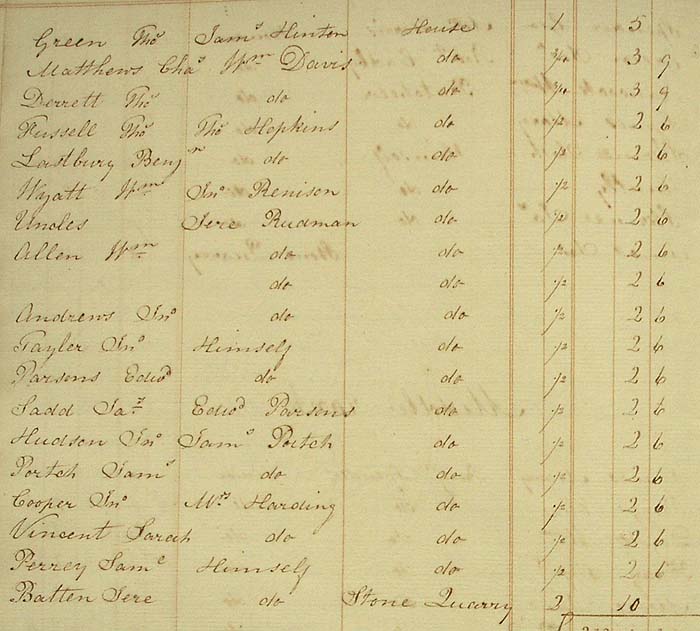 Green Thos Saml Hinton House 1 5
Matthews Chas Wm Davis do 3/4 3 9
Derrett Thos do do 3/4 3 9
Fussell Thos Thos Hopkins do 1/2 2 6
Lastbury Benjn do do 1/2 2 6
Wyatt Wm Jno Renison do 1/2 2 6
Uncles Jere Rudman do 1/2 2 6
Allen Wm do do 1/2 2 6
do do 1/2 2 6
Andrews Jno do do 1/2 2 6
Tayler Jno Himself do 1/2 2 6
Parsons Edwd do do 1/2 2 6
Sadd Jas Edwd Parsons do 1/2 2 6
Hudson Jno Saml Portch do 1/2 2 6
Portch Saml do do 1/2 2 6
Cooper Jno Mrs Harding do 1/2 2 6
Vincent Sarah do do 1/2 2 6
Perrey Saml Himself do 1/2 2 6
Batten Jere do Stone Quarry 2 10